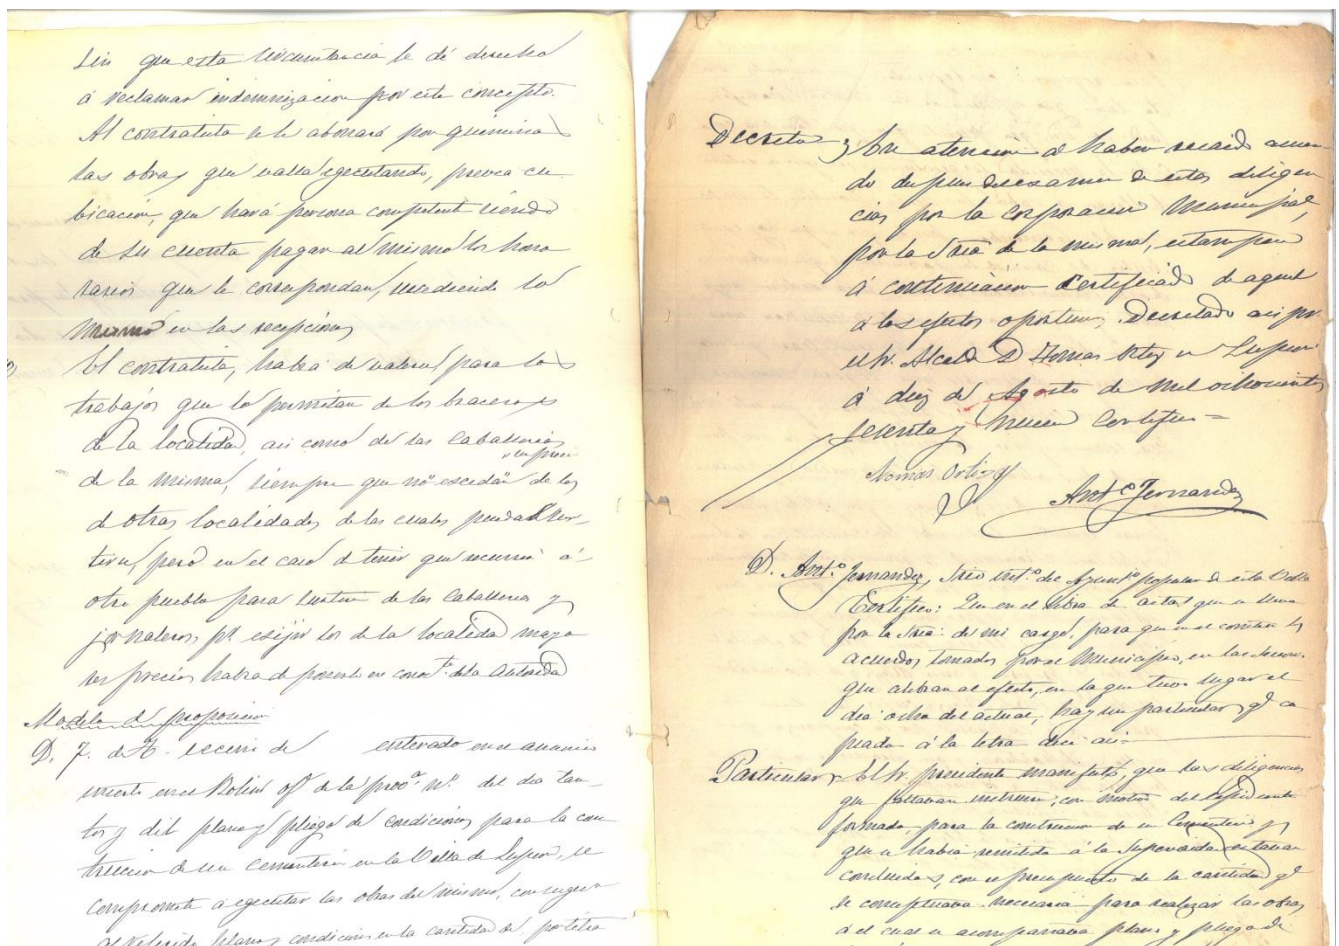 sin que esta circunstancia le dé derecho
á reclamar indemnizacion por este concepto.
Al contratista se le abonará por quincenas
las obras que valla egecutando, previa cu-
bicacion, que hará persona competente siendo
de su cuenta pagar al mismo los hono
rarios que le correspondan, sucediendo lo
mismo en las recepciones
El contratista, habrá de valerse, para los
trabajos que lo permitan de los braceros
de la localidad, asi como de las caballerias
en precio
de la misma, siempre que no escedan de los
de otras localidades de las cuales pueda surtir-
, pero en el caso de tener que recurrir á
otro pueblo para surtirse de las caballerias y
jornaleros pr. esijir los de la localidad mayo
res precios habrá de ponerlo en conocto. de la Autoridad
Modelo de proposicion
D. F. de T. vecino de enterado en el anuncio
inserto en el Boletin of. de la provª. nº. del dia tan-
tos y del plano y pliego de condiciones para la cons
truccion de un cementerio en la Villa de Lupion, se
compromete á egecutar las obras del mismo, con sugecion
al referido plano y condiciones en la cantidad de
Decreto, En atencion al haber recaido acuer
do despues de examen de estas diligen
cias por la corporacion Municipal,
por la Sriá de la misma, estampese
á continuacion certificado de aquel
á los efectos oportunos. Decretado asi por
el Sr. Alcalde D Tomas Ortiz en Lupion
á diez de Agosto de mil ochocientos
sesenta y nueve Certifico =
Tomas Ortiz
Antº Fernandez
D. Antº. Fernandez, Srio intº. del Ayuntº. popular de esta Villa
Certifico: Que en el libro de actas que se lleva
por la Sriá. de mi cargo, para que en el consten los
acuerdos tomados por el Municipio, en las sesiones
que celebran al efecto, en la que tuvo lugar el
dia ocho del actual, hay un particular, qe. co
piado á la letra dice asi
Particular, El Sr. presidente manifestó, que las diligencias
que faltaban instruir, con motivo del Espediente
formado para la construccion de un Cementerio y
que se habia remitido á la Superioridad estaban
concluidas, con el presupuesto de la cantidad qe.
se conceptuaba necesaria para realizar las obras,
á el cual se acompañaba plano y pliego de